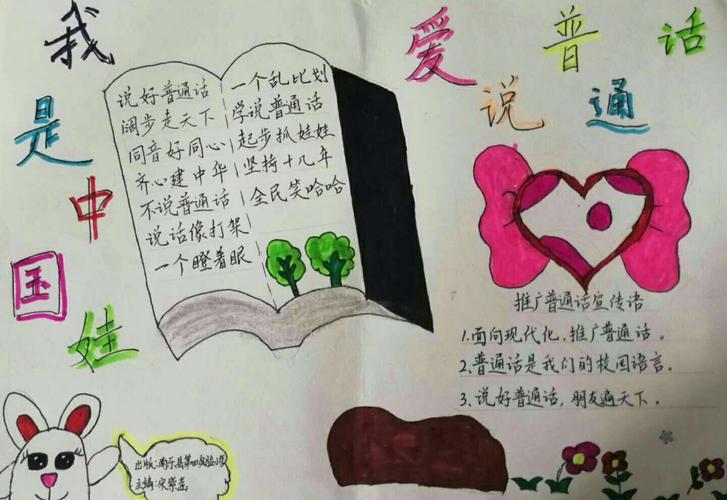 我是中国娃
爱说普通话
说好普通话
阔步走天下
同音好同心
齐心建中华
不说普通话
说话像打架
一个瞪着眼
一个乱比划
学说普通话
起步抓娃娃
坚持十几年
全民笑哈哈
推广普通话宣传语
1.面向现代化,推广普通话。
2.普通话是我们的校园语言.
3.说好普通话,朋友遍天下.
出版:南乐县第四实验小学
主编:宋